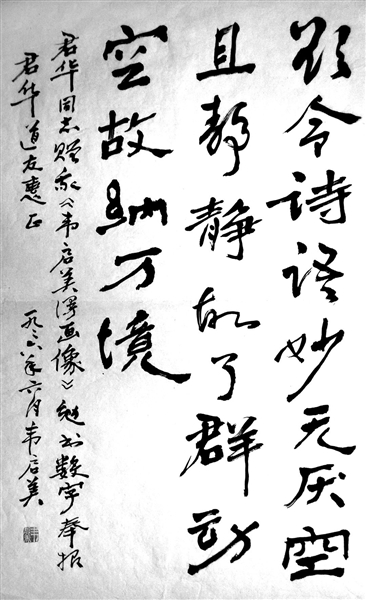 欲令诗语妙无厌空
且静静故了群动
空故纳万境
君华同志赠我《韦启美漫画像》勉书数字奉报
君华道友惠正
一九八六年六月韦启美